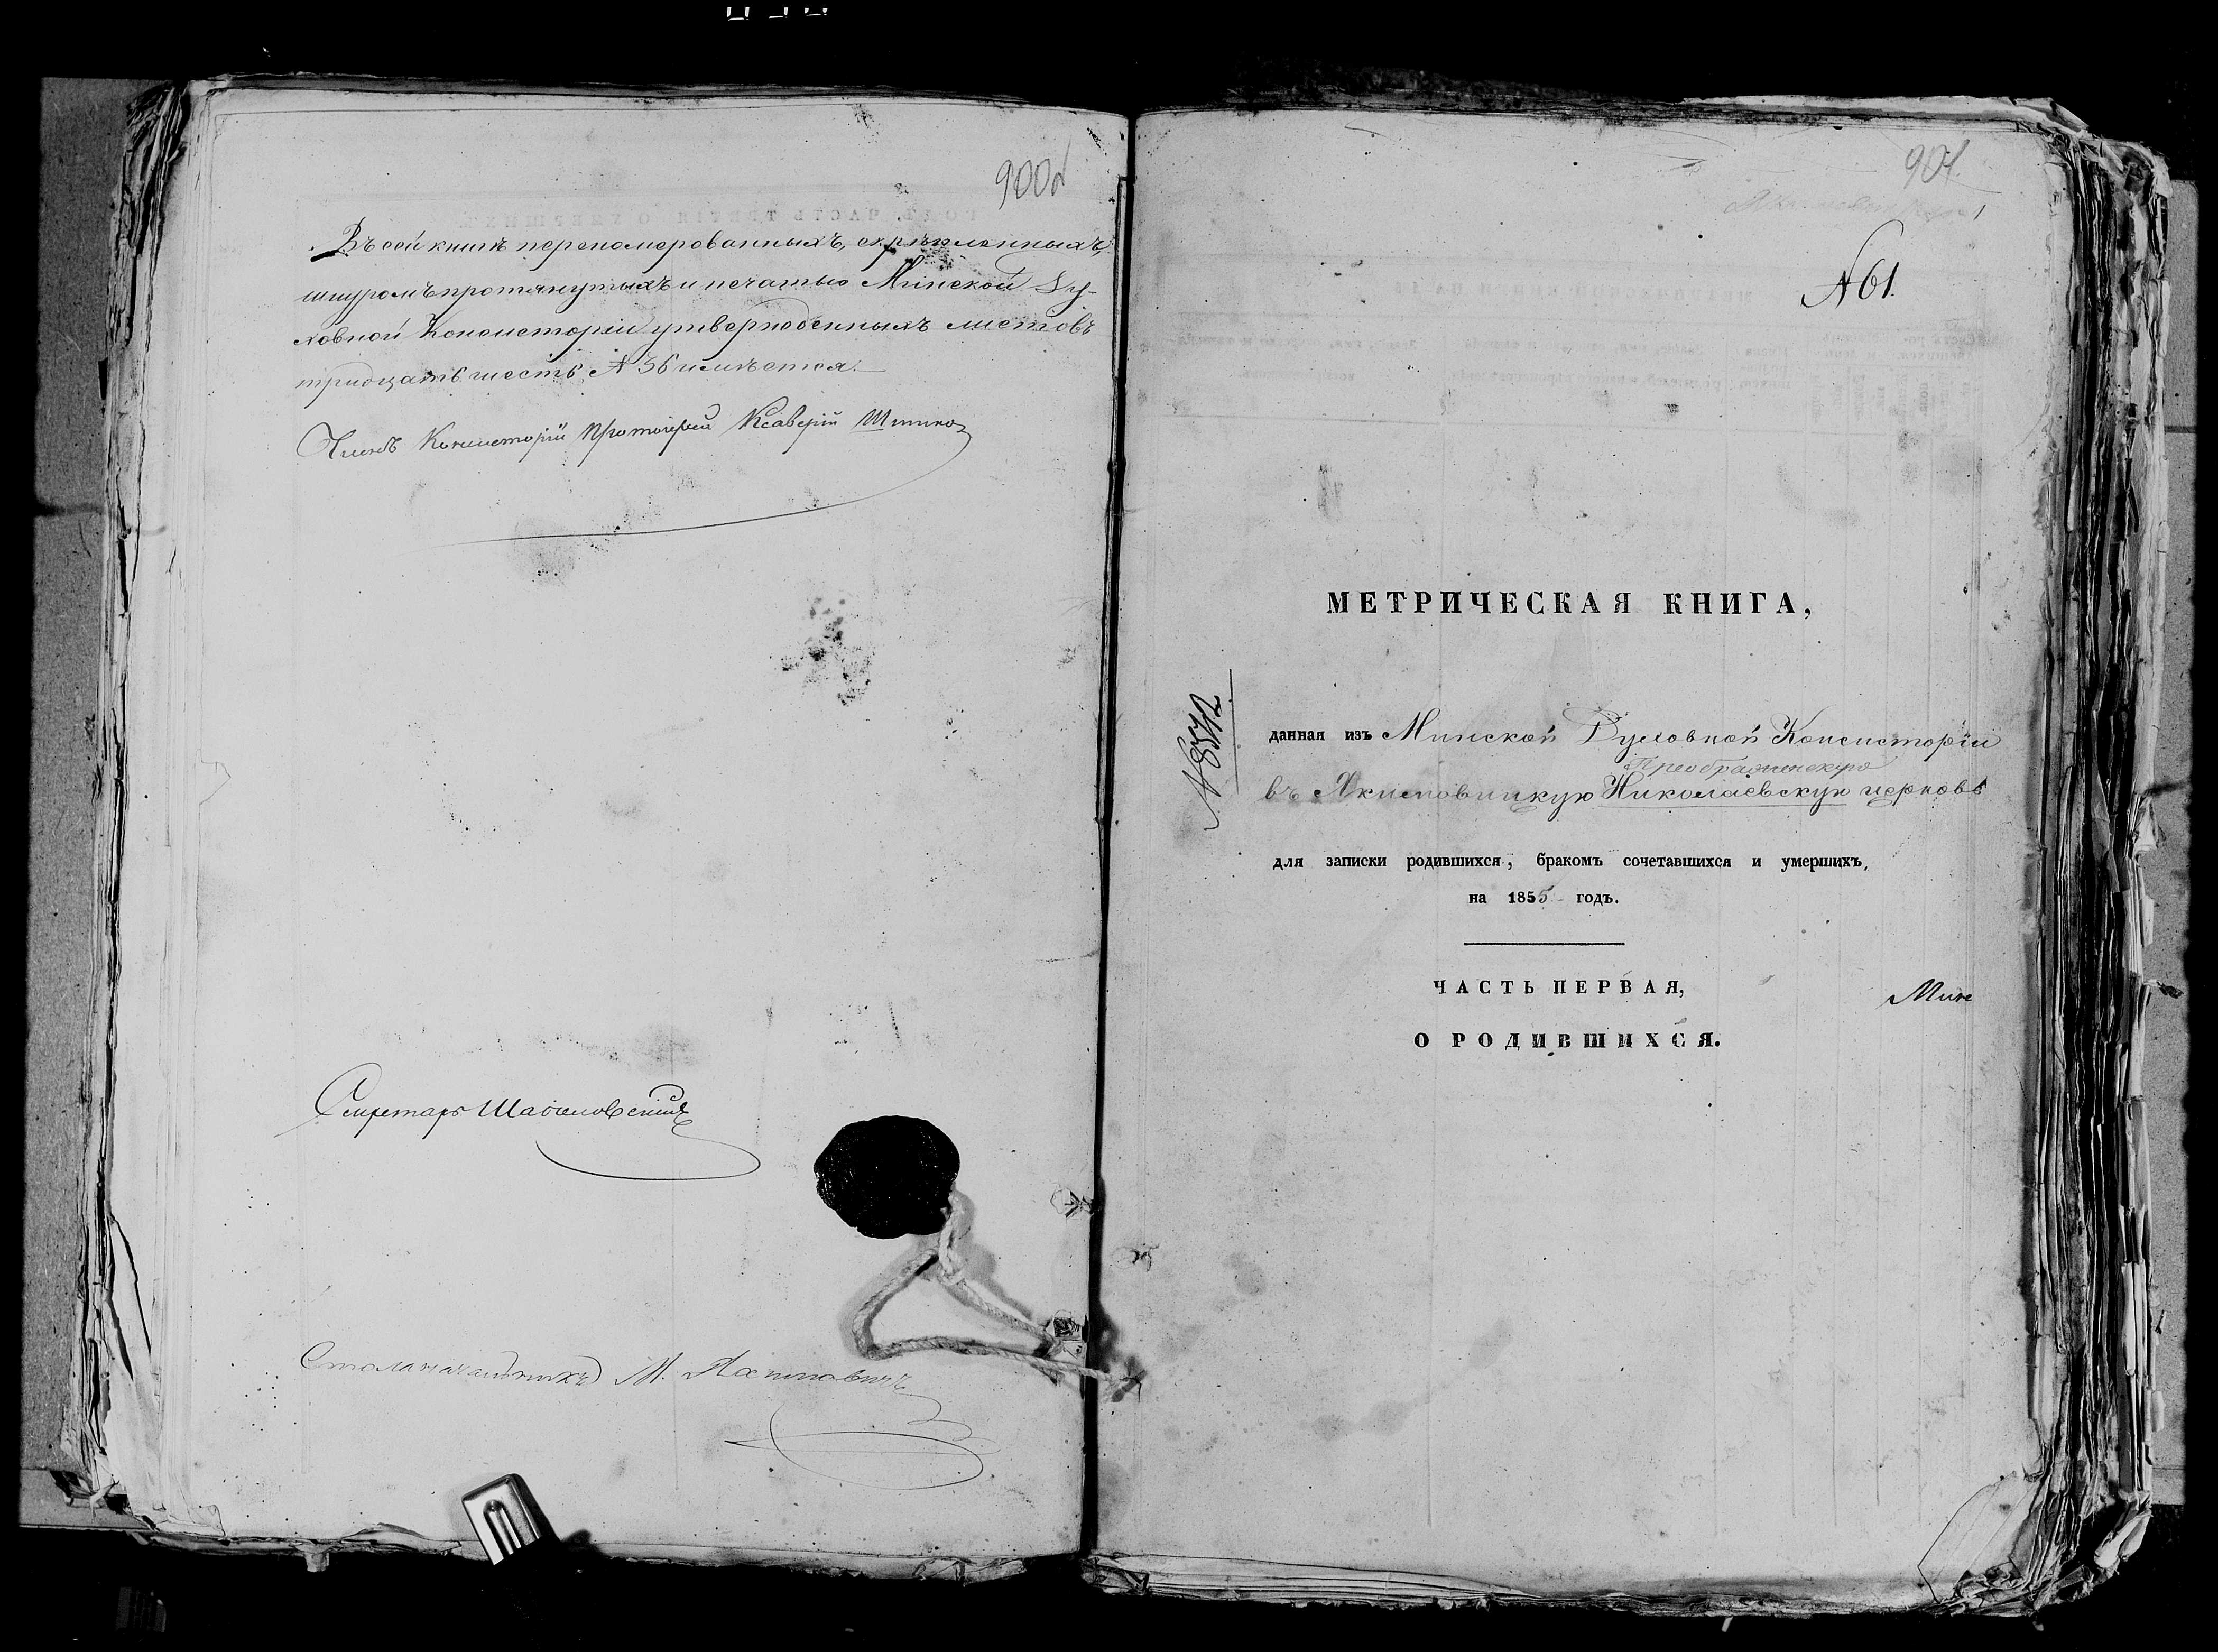 900об
Въ сей книгѣ перономерованныхъ, скрѣпленныхъ,
шнуромъ протянутыхъ и печатью Минской Ду-
ховной Консисторіи утвержденныхъ листовъ
тридцать шесть № 36 имѣется.
Членъ Консисторіи Протоіерей Ксаверій
Секретарь
Столоначальникъ М.
901
№ 61.
МЕТРИЧЕСКАЯ КНИГА,
№ 8572
данная изъ Минской Духовной Консисторіи
Преображенскую
въ Якимовицкую Николаевскую церковь
для записки родившихся, бракомъ сочетавшихся и умершихъ,
на 1855 годъ.
ЧАСТЬ ПЕРВАЯ,
Мин
О РОДИВШИХСЯ.